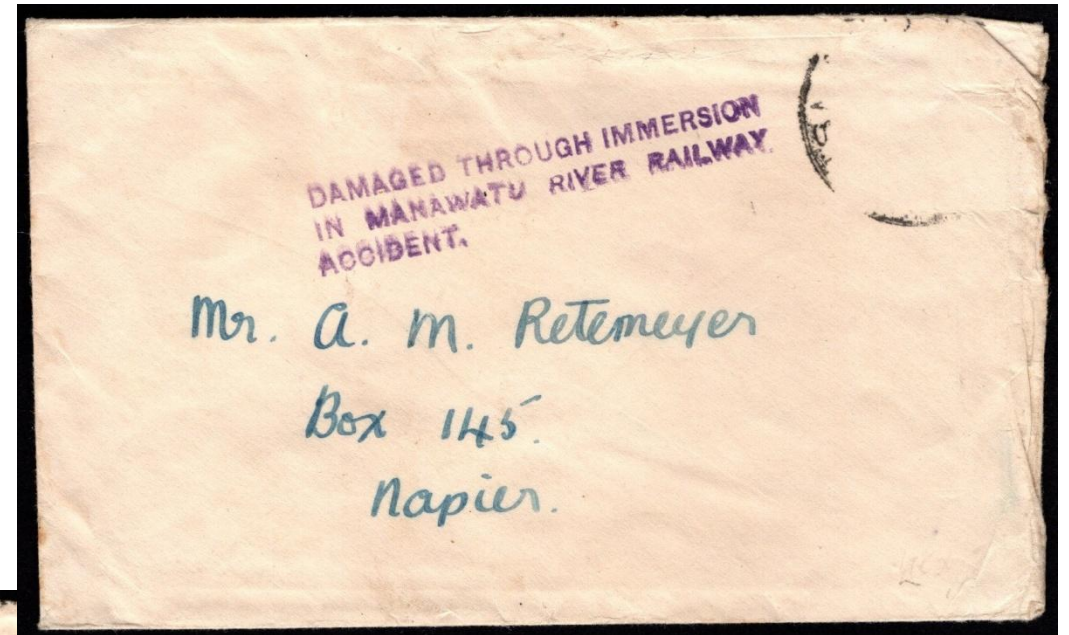 DAMAGED THROUGH IMMERSION
IN MANAWATU RIVER RAILWAY
ACCIDENT.
Mr. A. M. Retemeyer
Box 145.
Napier.